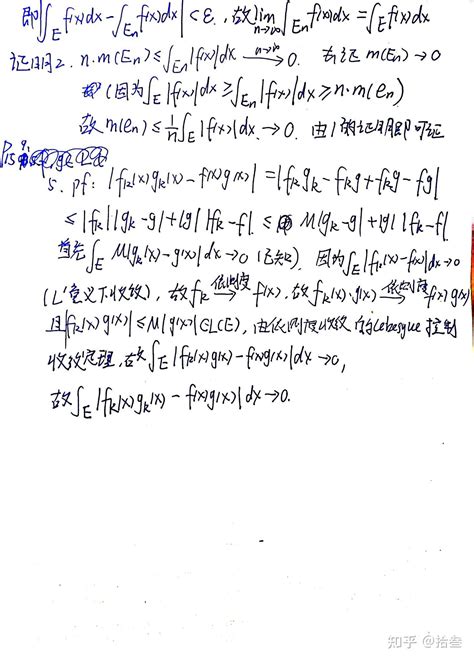 即|∫_E f(x)dx - ∫_{En} f(x)dx| < ε, 故 lim_{n→∞} ∫_{En} f(x)dx = ∫_E f(x)dx
证明2. n·m(En) ≤ ∫_{En} |f(x)|dx →^{n→∞} 0. 去证 m(En)→0
即 (因为 ∫_E |f(x)|dx ≥ ∫_{En} |f(x)|dx ≥ n·m(en)
故 m(en) ≤ 1/n ∫_E |f(x)|dx. → 0. 由1的证明即可证
5. pf: |f_k(x)g_k(x) - f(x)g(x)| = |f_k g_k - f_k g + f_k g - fg|
≤ |f_k| |g_k - g| + |g| |f_k - f| ≤ M|g_k - g| + |g| |f_k - f|
首先 ∫_E M|g_k(x) - g(x)|dx → 0 (已知). 因为 ∫_E |f_k(x) - f(x)|dx → 0
(L' 意义下收敛), 故 f_k →^{依测度} f(x), 故 f_k(x)g(x) →^{依测度} f(x)g(x)
且 |f_k(x)g(x)| ≤ M|g(x)| ∈ L(E), 由依测度收敛的Lebesgue控制
收敛定理, 故 ∫_E |f_k(x)g(x) - f(x)g(x)|dx → 0,
故 ∫_E |f_k(x)g_k(x) - f(x)g(x)|dx → 0.
知乎 @拾叁